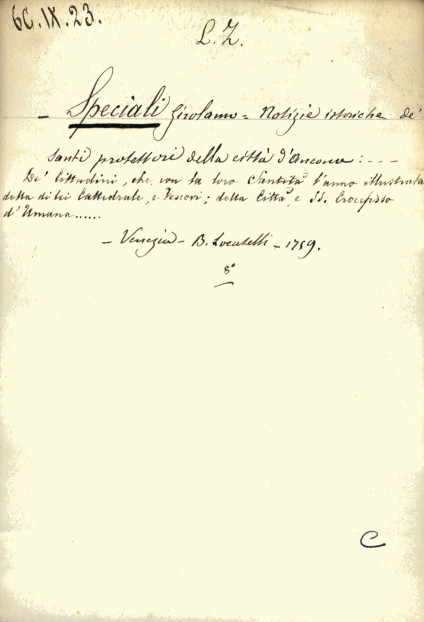 6C.IX.23.
L. Z.
- Speciali Girolamo = Notizie istoriche de'
Santi protettori della città d'Ancona : - - -
De' Cittadini, che con la loro Santità l'anno illustrata
della di lei Cattedrale, e Vescovi; della Città, e SS. Crocifisso
d'Umana......
- Venezia - B. Locatelli - 1759.
8°
C